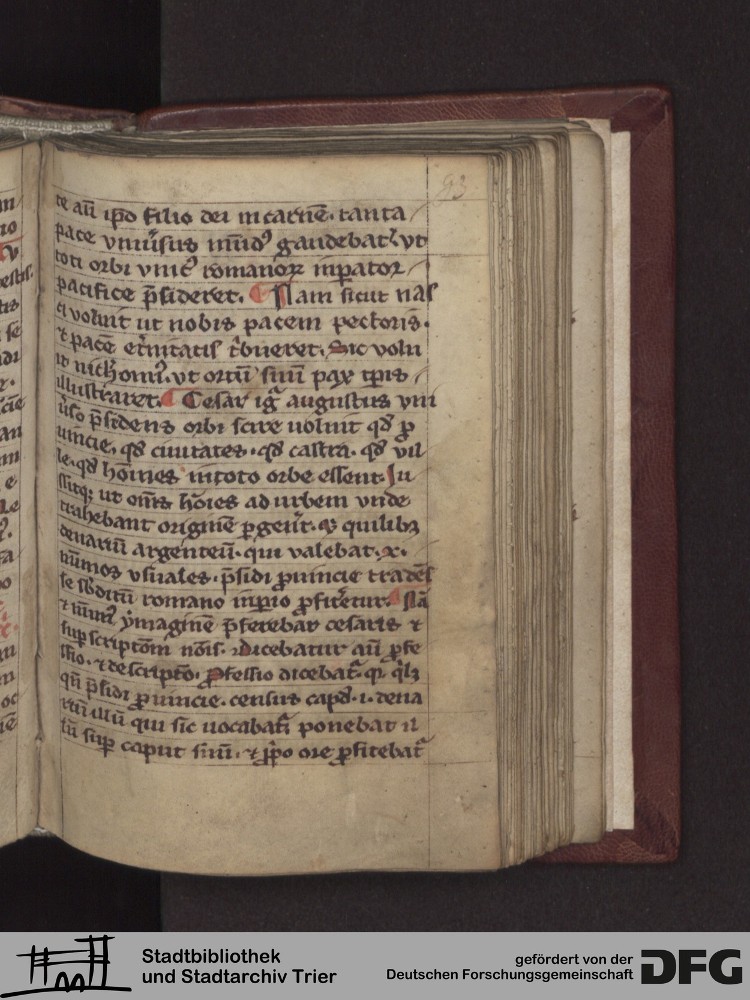 93
te aū ip̄o filio dei in carnē. tanta
pace vniu̾sus mūd⁹ gaudebat᷑. vt
toti orbi vnic⁹ romanoꝝ inpator
pacifice p̄sideret. Nam sicut nas
ci voluit ut nobis pacem pectoris.
⁊ pacē et̾nitatis t̾bueret. Sic volu
it nich̾omi⁹. vt ortū suū pax tp̄is
illustraret. Cesar igr̄ augustus vni
u̾so p̄sidens orbi scire uoluit qd̄ ꝓ
uincie. qd̄ ciuitates. qd̄ castra. qd̄ vil
le. qd̄ hoīnes in toto orbe essent. Iu
ssitqꝫ ut om̄s ho̅ies ad urbem vnde
trahebant originē ꝑgeu̅t. ⁊ quilibꝫ
denariū argenteū. qui valebat .x.
nūmos vsuales. p̄sidi ꝓuincie tradēs
se sb̾ditū romano inp̱io ꝓfiteretur. Nā
⁊ nu̅m⁹ ymaginē p̄ferebat cesaris ⁊
suꝑscriptōm nōis. Dicebatur aū ꝓfe
ssio. ⁊ descriptō. Ꝓfessio dicebat᷑. qꝛ qⁱlꝫ
qn̄ p̄sidi ꝓuincie. census capd̾. i. dena
riū illū qui sic uocabat᷑ ponebat il
lū suꝑ caput suū. ⁊ ꝓp̄o ore ꝓfitebat᷑
Stadtbibliothek
und Stadtarchiv Trier
gefördert von der
Deutschen Forschungsgemeinschaft
DFG